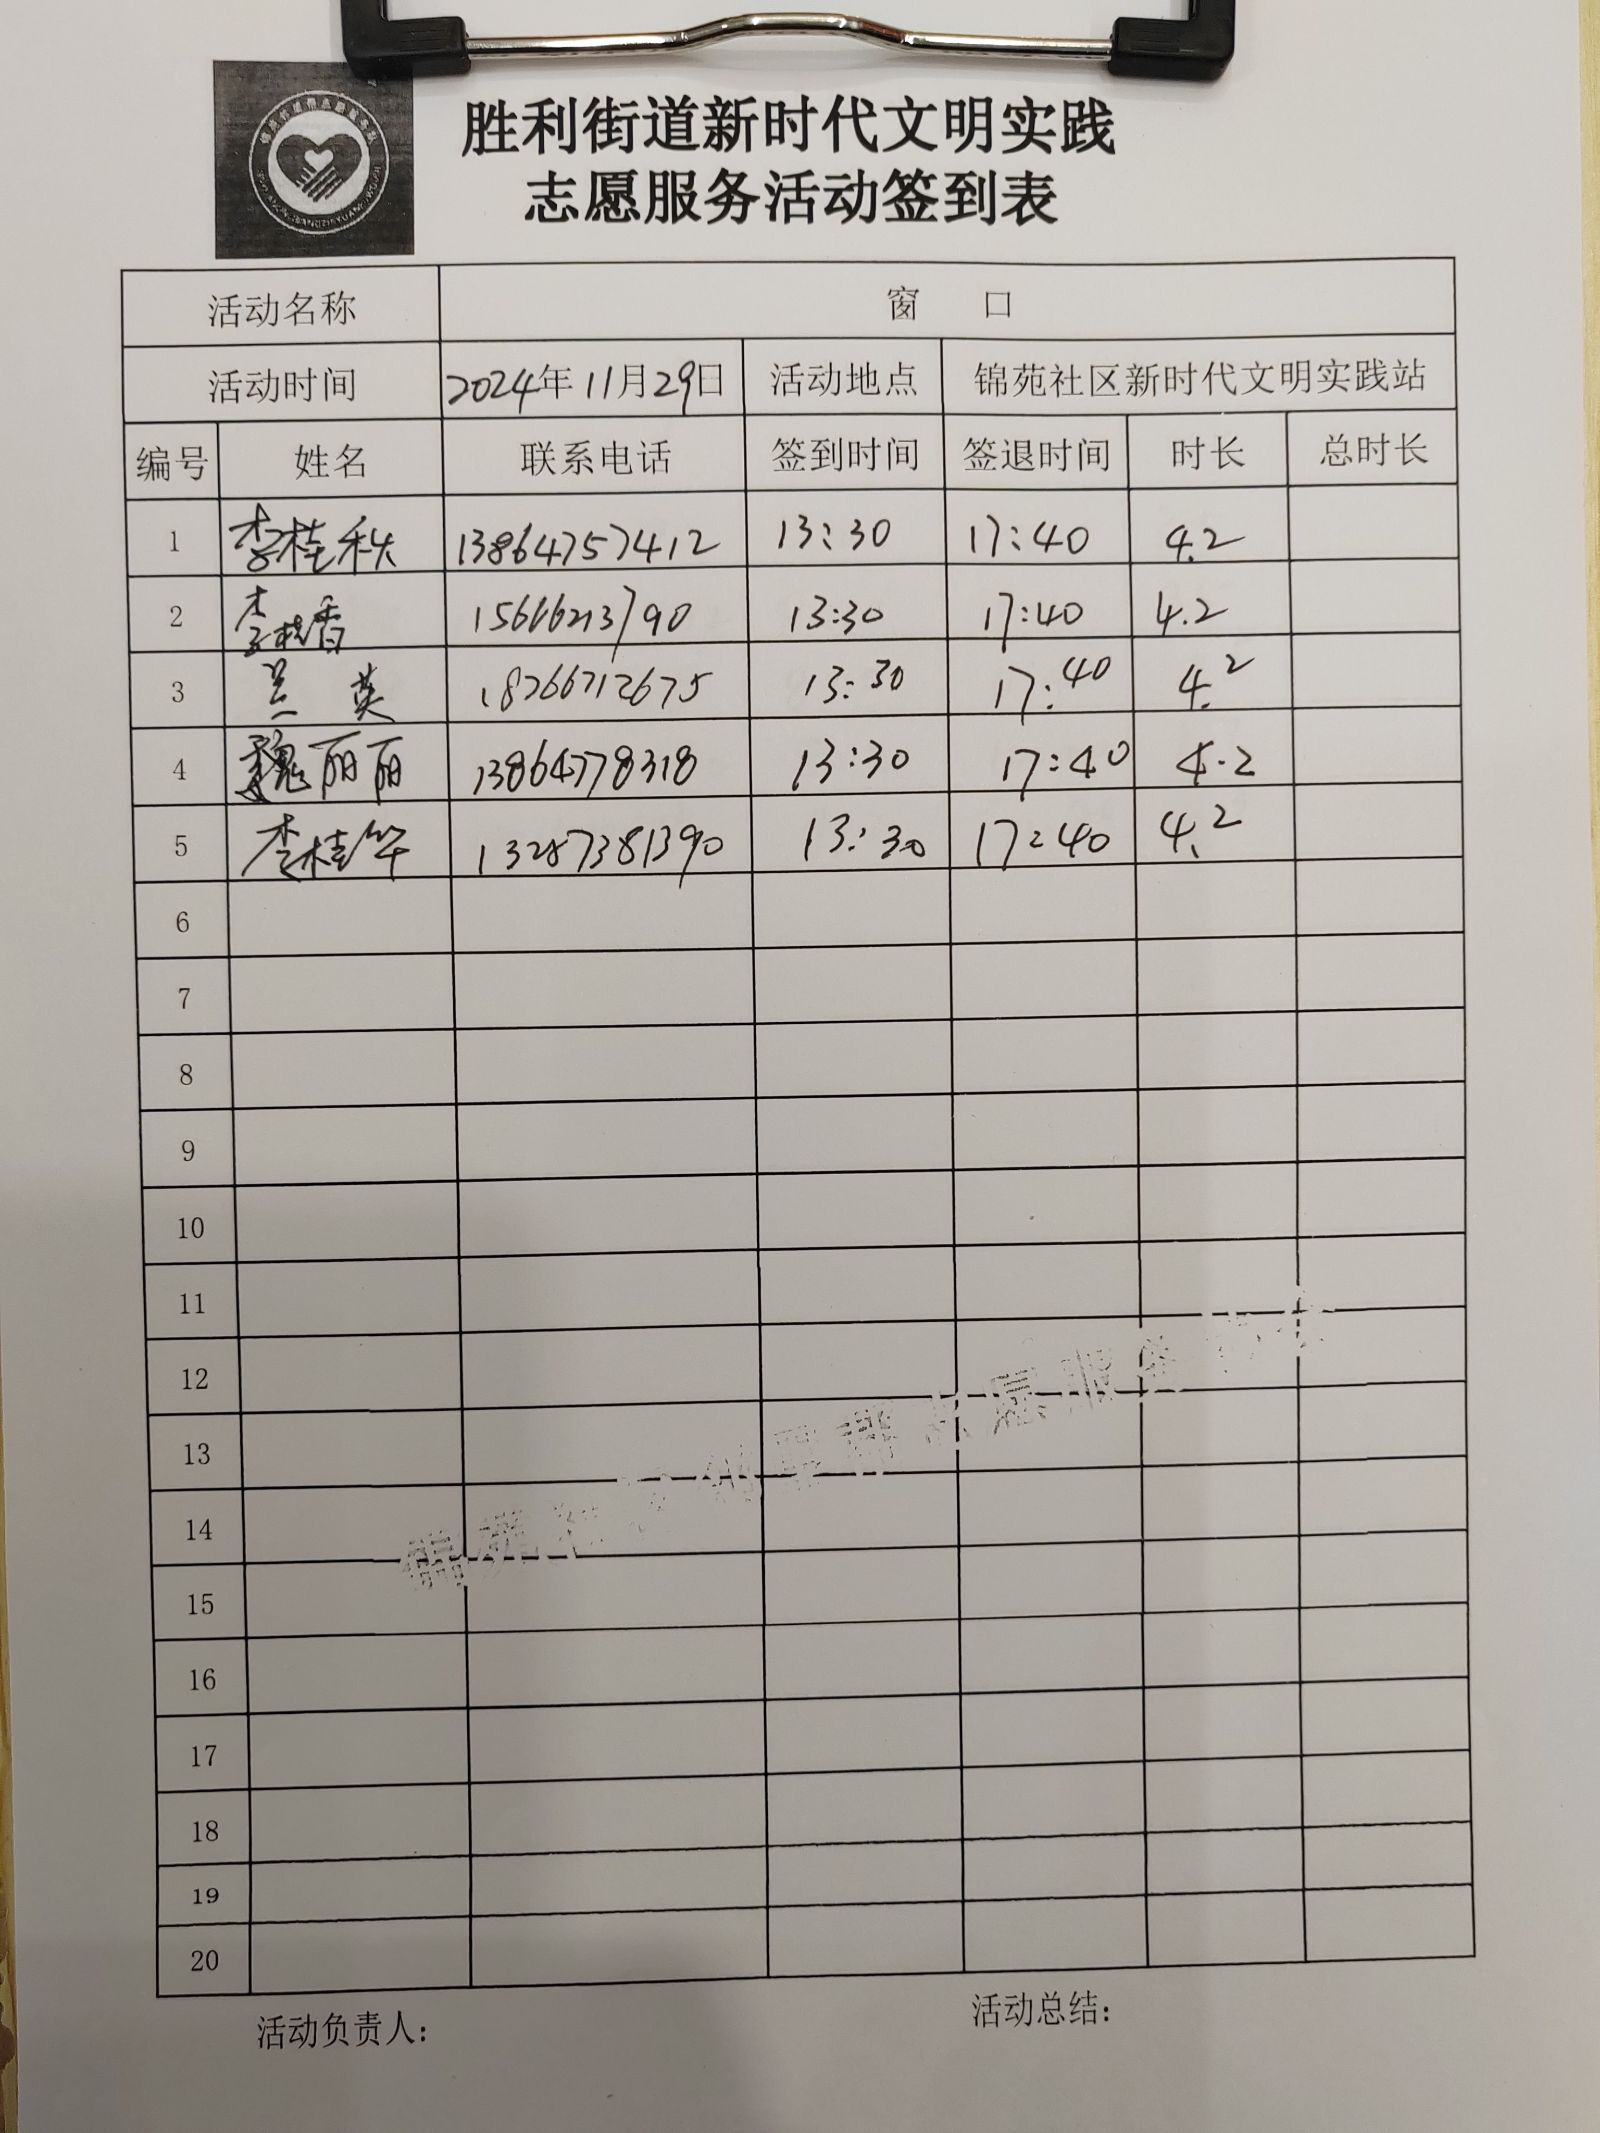 胜利街道新时代文明实践
志愿服务活动签到表
活动名称 窗 口
活动时间 2024年11月29日 活动地点 锦苑社区新时代文明实践站
编号 姓名 联系电话 签到时间 签退时间 时长 总时长
1 李桂秋 13864757412 13:30 17:40 4.2
2 李桂香 15666213790 13:30 17:40 4.2
3 兰英 18266712675 13:30 17:40 4.2
4 魏丽丽 13864778318 13:30 17:40 4.2
5 李桂华 13287381390 13:30 17:40 4.2
6
7
8
9
10
11
12
13
14
15
16
17
18
19
20
活动负责人: 活动总结: